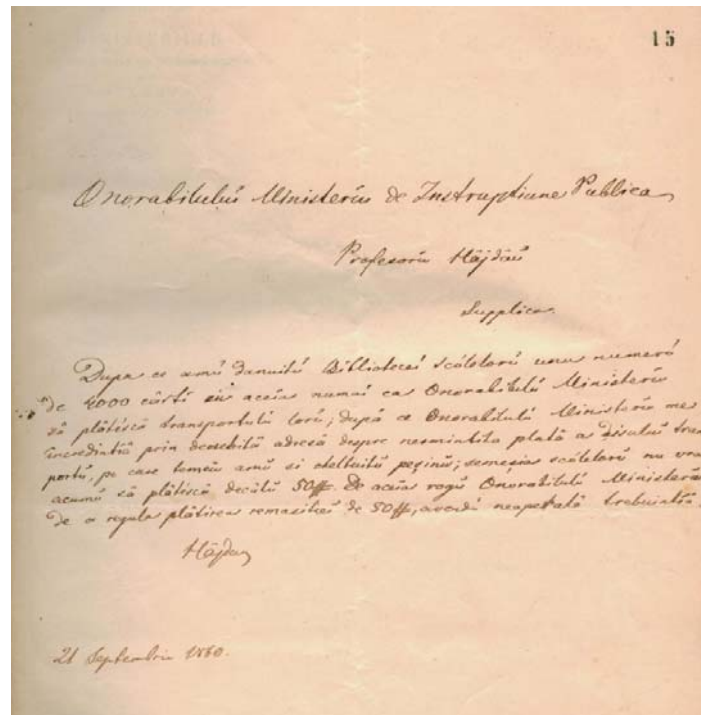 15
Onorabilului Ministeriu de Instrupțiune Publica
Profesoriu Hăjdău
Supplica.
Dupa ce amŭ danuitŭ Bibliotecei scólelorŭ unu numerŭ
de 4000 cărți cu aceia numai ca Onorabilulŭ Ministeriu
să plătiscă transportulŭ lorŭ; după ce Onorabilulŭ Ministeriu
prin deosebită adresă despre plată a disului
portŭ, pe care temeiu amŭ si cheltuitŭ; scólelorŭ nu
acumŭ să plătiscă decâtŭ 50 De aceia rogŭ Onorabilulŭ Ministeriu
de a regula plătirea remasitei de 50 avendŭ neapĕrată trebuintiă.
Hăjdeu
21 Septembriu 1860.